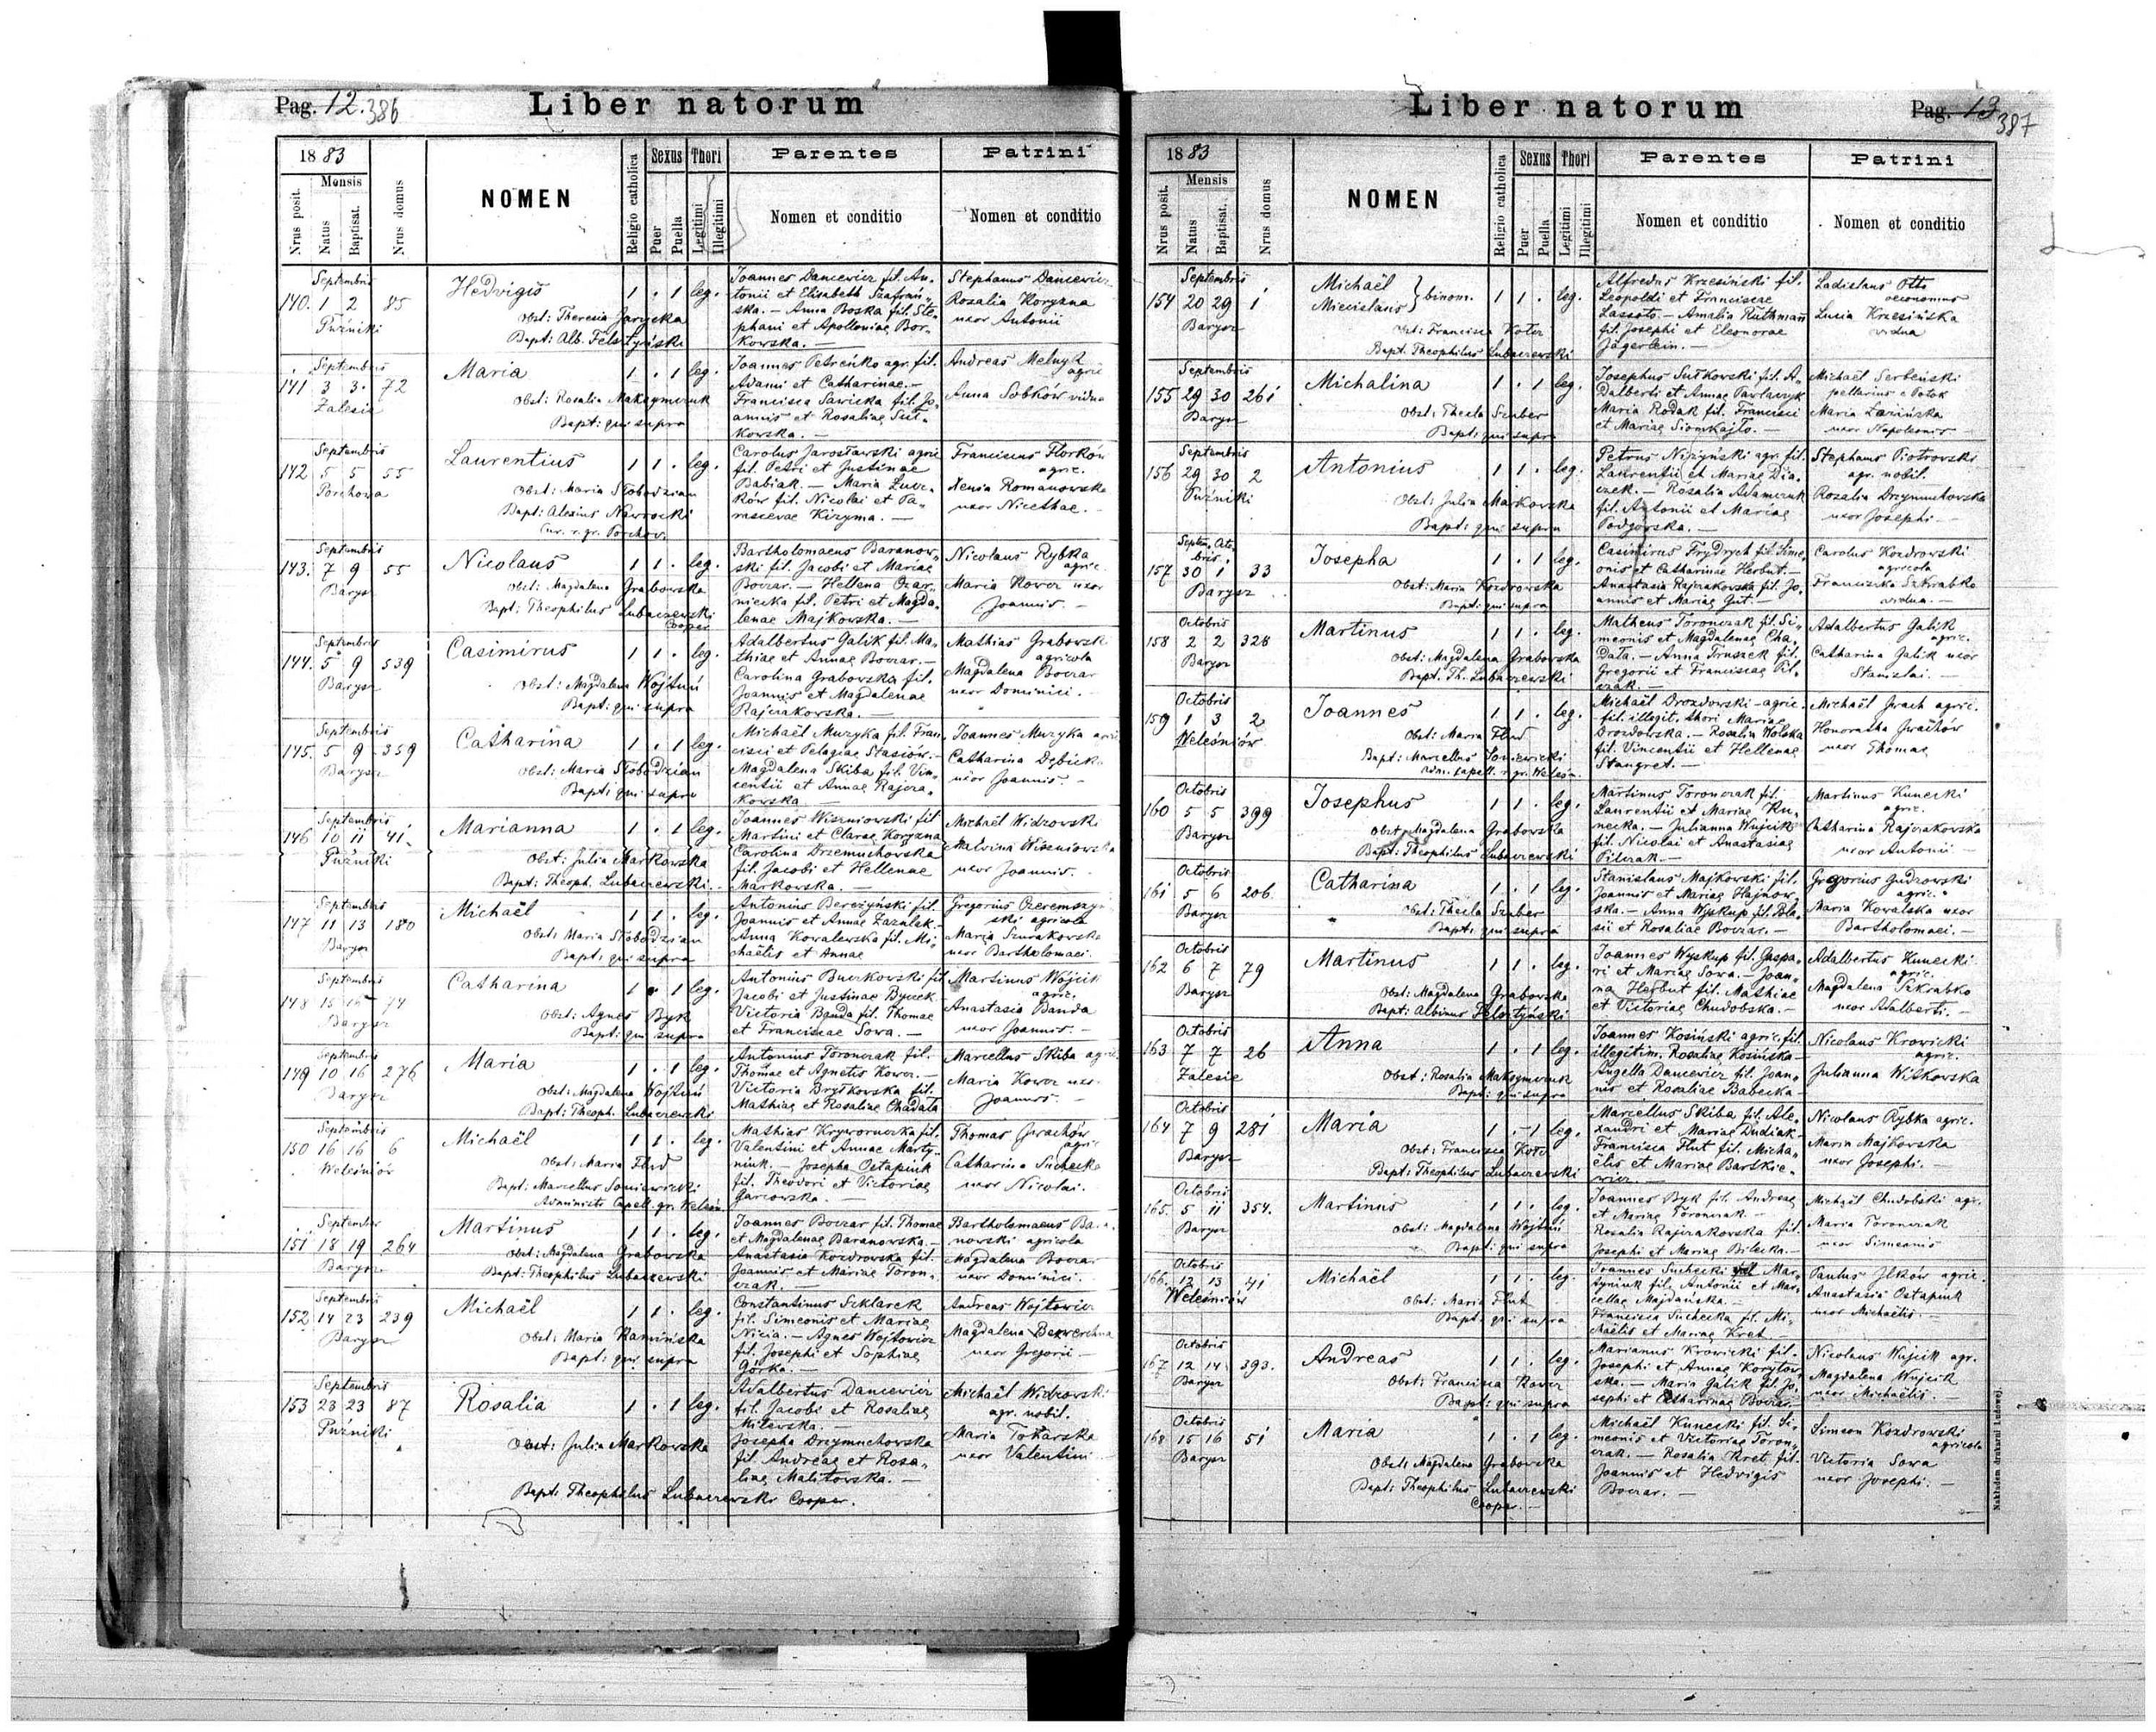 Pag. 12. 386
Liber natorum
1883
Nrus posit.
Mensis
Natus
Baptisat.
Nrus domus
NOMEN
Religio catholica
Sexus
Puer
Puella
Thori
Legitimi
Illegitimi
Parentes
Nomen et conditio
Patrini
Nomen et conditio
Septembris
140. 1 2 85
Puźniki
Hedvigis
Obst: Theresia Jarycka
Bapt: Alb. Felsztyński
1 . 1 leg.
Joannes Dancewicz fil. An-
tonii et Elisabeth Szafrań-
ska. – Anna Boska fil. Ste-
phani et Apolloniae Bor-
kowska. –
Stephanus Dancewicz
Rosalia Koryzna
uxor Antonii
Septembris
141 3 3. 72
Zalesie
Maria
Obst: Rosalia Maksymczuk
Bapt: qui supra
1 . 1 leg.
Joannes Petreńko agr. fil.
Adami et Catharinae. –
Francisca Sawicka fil. Jo-
annis et Rosaliae Sut-
kowska. –
Andreas Melnyk
agric
Anna Sobków vidua
Septembris
142 5 5 55
Porchowa
Laurentius
Obst: Maria Słobodzian
Bapt: Alexius Nawrocki
Cur. r. gr. Porchov.
1 1 . leg.
Carolus Jarosławski agric
fil. Petri et Justinae
Babiak. – Maria Luc-
ków fil. Nicolai et Pa-
rascevae Kizyma. –
Franciscus Florków
agric.
Xenia Romanowska
uxor Nicethae. –
Septembris
143. 7 9 55
Barysz
Nicolaus
Obst: Magdalena Grabowska
Bapt: Theophilus Lubaczewski
Cooper
1 1 . leg.
Bartholomaeus Baranow-
ski fil. Jacobi et Mariae
Boczar. – Hellena Czar-
niecka fil. Petri et Magda-
lenae Majkowska. –
Nicolaus Rybka
agric.
Maria Kowcz uxor
Joannis. –
Septembris
144. 5 9 539
Barysz
Casimirus
Obst: Magdalena Wojtuń
Bapt: qui supra
1 1 . leg.
Adalbertus Galik fil. Ma-
thiae et Annae Boczar. –
Carolina Grabowska fil.
Joannis et Magdalenae
Rajczakowska. –
Mathias Grabowsk
agricola
Magdalena Boczar
uxor Dominici. –
Septembris
145. 5 9 359
Barysz
Catharina
Obst: Maria Słobodzian
Bapt: qui supra
1 . 1 leg.
Michaël Muzyka fil. Fran-
cisci et Pelagiae Stasiów. –
Magdalena Skiba fil. Vin-
centii et Annae Rajcza-
kowska
Joannes Muzyka agri
Catharina Dębick
uxor Joannis –
Septembris
146 10 11 41.
Puźniki
Marianna
Obst: Julia Markowska
Bapt: Theoph. Lubaczewski.
1 . 1 leg.
Joannes Wiszniowski fil
Martini et Clarae Koryzna
Carolina Drzemuchowska
fil. Jacobi et Hellenae
Markowska. –
Michaël Widzowski
Malvina Wiszniowska
uxor Joannis. –
Septembris
147 11 13 180
Barysz
Michaël
Obst: Maria Słobodzian
Bapt: qui supra
1 1 . leg.
Antonius Bereżyński fil.
Joannis et Annae Zazulak. –
Anna Kowalewska fil. Mi-
chaëlis et Annae
Gregorius Czeremszyń
ski agricola
Maria Szurakowska
uxor Bartholomaei.
Septembris
148 15 16 74
Barysz
Catharina
Obst: Agnes Byk
Bapt: qui supra
1 . 1 leg.
Antonius Buczkowski fil
Jacobi et Justinae Byczek
Victoria Banda fil. Thomae
et Franciscae Sowa. –
Martinus Wojcik
agric.
Anastasia Banda
uxor Joannis. –
Septembris
149 10 16 276
Barysz
Maria
Obst: Magdalena Wojtuń
Bapt: Theoph. Lubaczewski
1 . 1 leg.
Antonius Toronczak fil.
Thomae et Agnetis Kowcz. –
Victoria Brytkowska fil.
Mathiae et Rosaliae Chadata
Marcellus Skiba agric
Maria Kowcz uxor
Joannis. –
Septembris
150 16 16 6
Weleśniów
Michaël
Obst: Maria Flud
Bapt: Marcellus Soniewicki
Administr. Capell. gr. Weleśn.
1 1 . leg.
Mathias Kryworuczka fil.
Valentini et Annae Marty-
niuk. – Josepha Ostapiuk
fil. Theodori et Victoriae
Garcowska. –
Thomas Jwachów
agric
Catharina Suchecka
uxor Nicolai.
September
151 18 19 264
Barysz
Martinus
Obst: Magdalena Grabowska
Bapt: Theophilus Lubaczewski
1 1 . leg.
Joannes Boczar fil. Thomae
et Magdalenae Baranowska. –
Anastasia Kozdrowska fil.
Joannis et Mariae Toron-
czak.
Bartholomaeus Bara
nowski agricola
Magdalena Boczar
uxor Dominici. –
Septembris
152 14 23 239
Barysz
Michaël
Obst: Maria Kamińska
Bapt: qui supra
1 1 . leg.
Constantinus Szklarek
fil. Simeonis et Mariae
Nicia. – Agnes Wojtowicz
fil. Josephi et Sophiae
Górka. –
Andreas Wojtowicz
Magdalena Bezwerchna
uxor Gregorii –
Septembris
153 23 23 87
Puźniki
Rosalia
Obst: Julia Markowska
Bapt: Theophilus Lubaczewski Cooper.
1 . 1 leg.
Adalbertus Dancewicz
fil. Jacobi et Rosaliae
Milewska. –
Josepha Drzymuchowska
fil. Andreae et Rosa-
liae Malitowska. –
Michaël Widzowski
agr. nobil.
Maria Tokarska
uxor Valentini –
Liber natorum
Pag. 13 387
1883
Nrus posit.
Mensis
Natus
Baptisat.
Nrus domus
NOMEN
Religio catholica
Sexus
Puer
Puella
Thori
Legitimi
Illegitimi
Parentes
Nomen et conditio
Patrini
Nomen et conditio
Septembris
154 20 29 1
Barysz
Michaël
Miecislaus } binom.
Obst: Francisca Kotcz
Bapt. Theophilus Lubaczewski
1 1 . leg.
Alfredus Krzesiński fil.
Leopoldi et Franciscae
Lassoto. – Amalia Ruthmann
fil. Josephi et Eleonorae
Jägerlein. –
Ladislaus Otto
oeconomus
Lusia Krzesińska
vidua
Septembris
155 29 30 261
Barysz
Michalina
Obst: Thecla Szuber
Bapt: qui supra
1 . 1 leg.
Josephus Sutkowski fil. A-
dalberti et Annae Pawlaczyk
Maria Rodak fil. Francisci
et Mariae Siomkajło. –
Michaël Serbeński
pellarius e Potok
Maria Łazińska
uxor Napoleonis –
Septembris
156 29 30 2
Puźniki
Antonius
Obst: Julia Markowska
Bapt: qui supra
1 1 . leg.
Petrus Niżyński agr. fil.
Laurentii et Mariae Dia-
czek. – Rosalia Adamczuk
fil. Antonii et Mariae
Podgórska. –
Stephanus Piotrowski
agr. nobil.
Rozalia Drzymuchowska
uxor Josephi –
Septem. Octo-
bris.
157 30 1 33
Barysz
Josepha
Obst: Maria Kozdrowska
Bapt: qui supra
1 . 1 leg.
Casimirus Frydrych fil. Sime-
onis et Catharinae Herbut. –
Anastasia Rajczakowska fil. Jo-
annis et Mariae Gut. –
Carolus Kozdrowski
agricola
Franciszka Szkrabko
vidua. –
Octobris
158 2 2 328
Barysz
Martinus
Obst: Magdalena Grabowska
Bapt. Th. Lubaczewski
1 1 . leg.
Matheus Toronczak fil. Si-
meonis et Magdalenae Cha-
data. – Anna Truszek fil.
Gregorii et Franciscae Pil-
czak. –
Adalbertus Galik
agric.
Catharina Galik uxor
Stanislai. –
Octobris
159 1 3 2
Weleśniów
Joannes
Obst: Maria Flud
Bapt: Marcellus Soniewicki
adm. capell. r. gr. Weleśn.
1 1 . leg.
Michaël Drozdowski – agric.
fil. illegit. thori Mariae
Drozdowska. – Rosalia Wołoska
fil. Vincentii et Hellenae
Stangret. –
Michaël Jwach agric.
Honoratha Jwachów
uxor Thomae
Octobris
160 5 5 399
Barysz
Josephus
Obst: Magdalena Grabowska
Bapt: Theophilus Lubaczewski
1 1 . leg.
Martinus Toronczak fil.
Laurentii et Mariae Ku-
necka. – Julianna Wujcik
fil. Nicolai et Anastasiae
Pilczak. –
Martinus Kunecki
agric.
Catharina Rajczakowska
uxor Antonii –
Octobris
161 5 6 206.
Barysz
Catharina
Obst: Thecla Szuber
Bapt: qui supra
1 . 1 leg.
Stanislaus Majkowski fil.
Joannis et Mariae Hajnow-
ska. – Anna Wyskup fil. Bla-
sii et Rosaliae Boczar. –
Gregorius Gudzowski
agric.
Maria Kowalska uxor
Bartholomaei. –
Octobris
162 6 7 79
Barysz
Martinus
Obst: Magdalena Grabowska
Bapt: Albinus Felsztyński
1 1 . leg.
Joannes Wyskup fil. Gaspa-
ri et Mariae Sowa. – Joan-
na Herbut fil. Mathiae
et Victoriae Chudobska. –
Adalbertus Kunecki
agric.
Magdalena Szkrabko
uxor Adalberti. –
Octobris
163 7 7 26
Zalesie
Anna
Obst: Rosalia Maksymczuk
Bapt: qui supra
1 . 1 leg.
Joannes Kosiński agric. fil.
illegitim. Rosaliae Kosińska –
Angella Dancewicz fil. Joan-
nis et Rosaliae Babecka –
Nicolaus Krowicki
agric.
Julianna Witkowska
Octobris
164 7 9 281
Barysz
Maria
Obst: Francisca Kotcz
Bapt: Theophilus Lubaczewski
1 – 1 leg.
Marcellus Skiba fil. Ale-
xandri et Mariae Dudiak –
Francisca Flut fil. Micha-
ëlis et Mariae Bartkie-
wicz. –
Nicolaus Rybka agric.
Maria Majkowska
uxor Josephi. –
Octobris
165. 5 11 354.
Barysz
Martinus
Obst: Magdalena Wojtuń
Bapt: qui supra
1 1 . leg.
Joannes Byk fil. Andreae
et Mariae Toronczak –
Rosalia Rajczakowska fil.
Josephi et Mariae Bilecka. –
Michaël Chudobski agr.
Maria Toronczak
uxor Simeonis
Octobris
166. 12 13 41
Weleśniów
Michaël
Obst: Maria Flut
Bapt: qui supra
1 1 . leg.
Joannes Suchecki Mar-
tyniuk fil. Antonii et Mar-
cellae Majdańska. –
Francisca Suchecka fil. Mi-
chaëlis et Mariae Kret –
Paulus Jlków agric.
Anastasia Ostapiuk
uxor Michaëlis. –
Octobris
167 12 14 393.
Barysz
Andreas
Obst: Francisca Kowcz
Bapt: qui supra
1 1 . leg.
Marianus Krowicki fil.
Josephi et Annae Korytow-
ska. – Maria Galik fil. Jo-
sephi et Catharinae Boczar –
Nicolaus Wujcik agr.
Magdalena Wujcik
uxor Michaëlis.
Octobris
168 15 16 51
Barysz
Maria
Obst: Magdalena Grabowska
Bapt: Theophilus Lubaczewski
Cooper. –
1 . 1 leg.
Michaël Kunecki fil. Si-
meonis et Victoriae Toron-
czak. – Rosalia Kret fil.
Joannis et Hedvigis
Boczar. –
Simeon Kozdrowski
agricola
Victoria Sowa
uxor Josephi. –
Nakładem drukarni Ludowej.